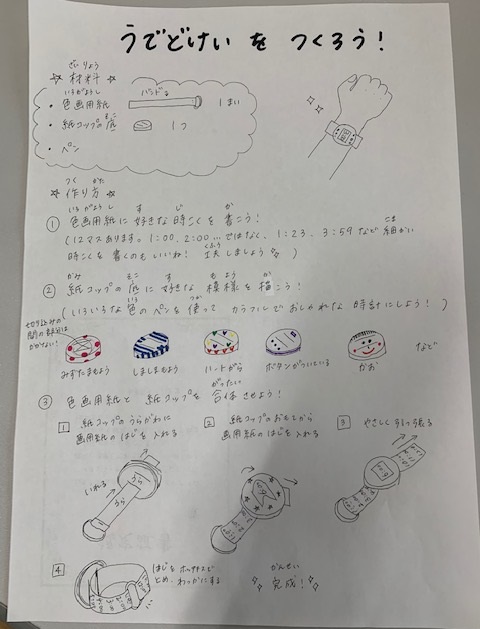 うでどけいを つくろう！
ざいりょう
☆ 材料 ☆
いろがようし バンド
・色画用紙 1まい
そこ
・紙コップの底 1つ
・ペン
つく かた
☆ 作り方 ☆
いろがようし す じ か
① 色画用紙に 好きな 時こくを 書こう！
(12マスあります。1:00、2:00…ではなく、1:23、3:59など 細かい
こま
時こくを書くのもいいね！ 工夫しましょう )
くふう
かみ そこ す もよう か
② 紙コップの底に 好きな 模様を 描こう！
いろ つか
(いろいろな色のペンを使って カラフルでおしゃれな 時計にしよう！)
切り込みの
間の部分は
かかない！
みずたまもよう しましまもよう ハートがら ボタンがついている かお など
がったい
③ 色画用紙と 紙コップを 合体させよう！
1 紙コップのうらがわに
画用紙のはじを入れる
2 紙コップのおもてから
画用紙のはじを入れる
3 やさしくするっと張る
いれる
うら
うら
4 はじをホッチキスで
とめ、わっかにする
かんせい
完成！